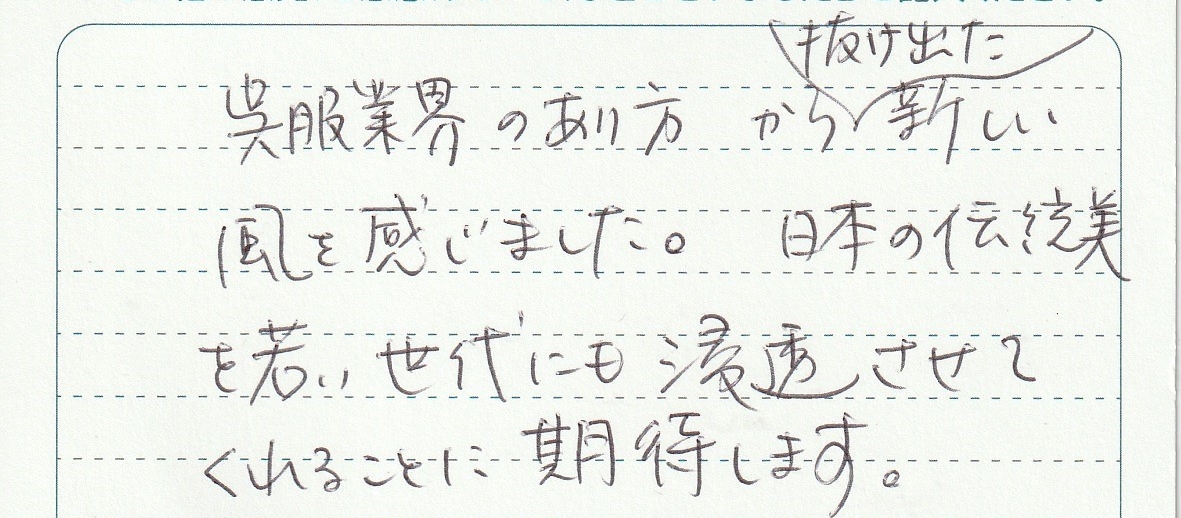 抜け出た
呉服業界のあり方 から新しい
風を感じました。 日本の伝統美
を若い世代にも浸透させて
くれることに期待します。